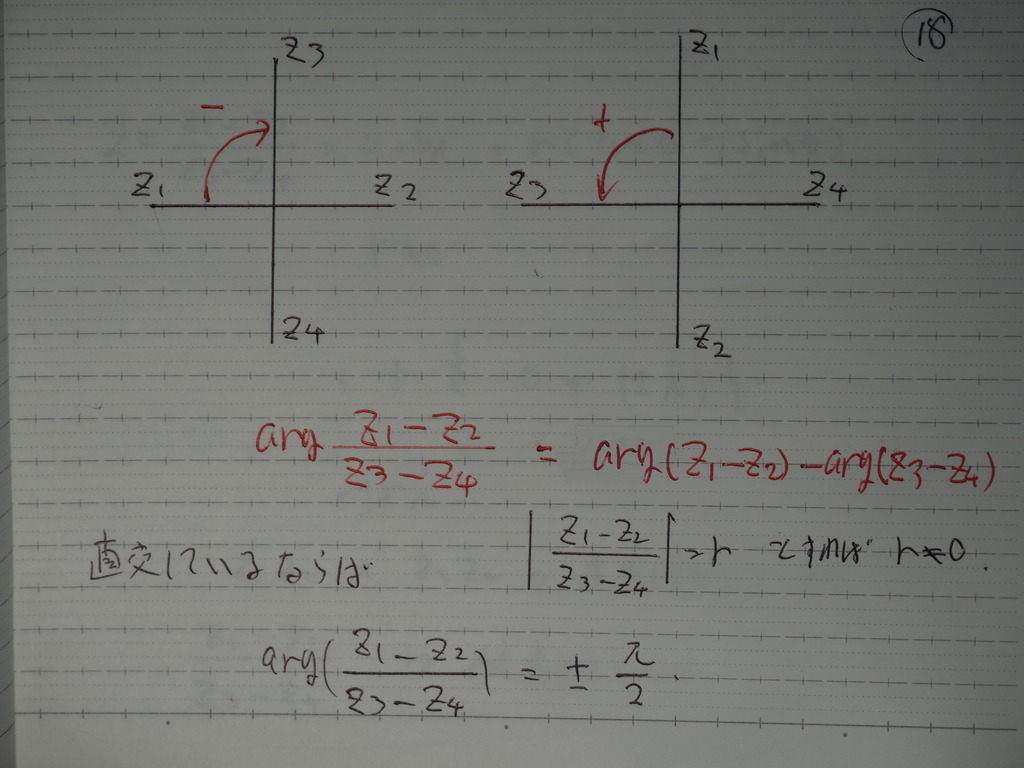 ⑱
Z3
−
Z1 Z2
Z4
Z1
+
Z3 Z4
Z2
arg (Z1−Z2)/(Z3−Z4) = arg(Z1−Z2)−arg(Z3−Z4)
直交しているならば |(Z1−Z2)/(Z3−Z4)|=r とすれば r≠0.
arg((Z1−Z2)/(Z3−Z4)) = ± π/2.